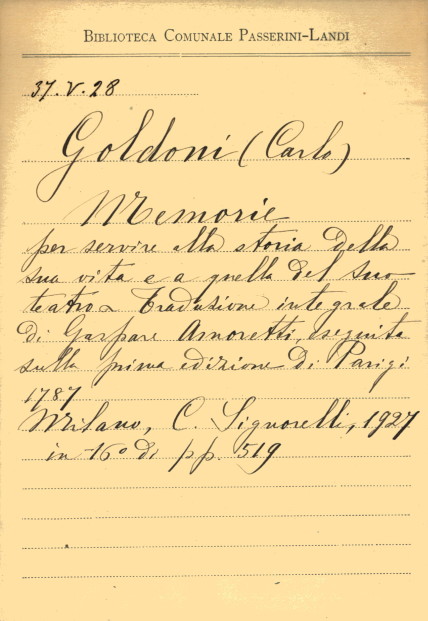 BIBLIOTECA COMUNALE PASSERINI-LANDI
37.V.28
Goldoni (Carlo)
Memorie
per servire alla storia della
sua vita e a quella del suo
teatro. Traduzione integrale
di Gaspare Amoretti, eseguita
sulla prima edizione di Parigi
1787
Milano, C. Signorelli, 1927
in 16° di pp. 519